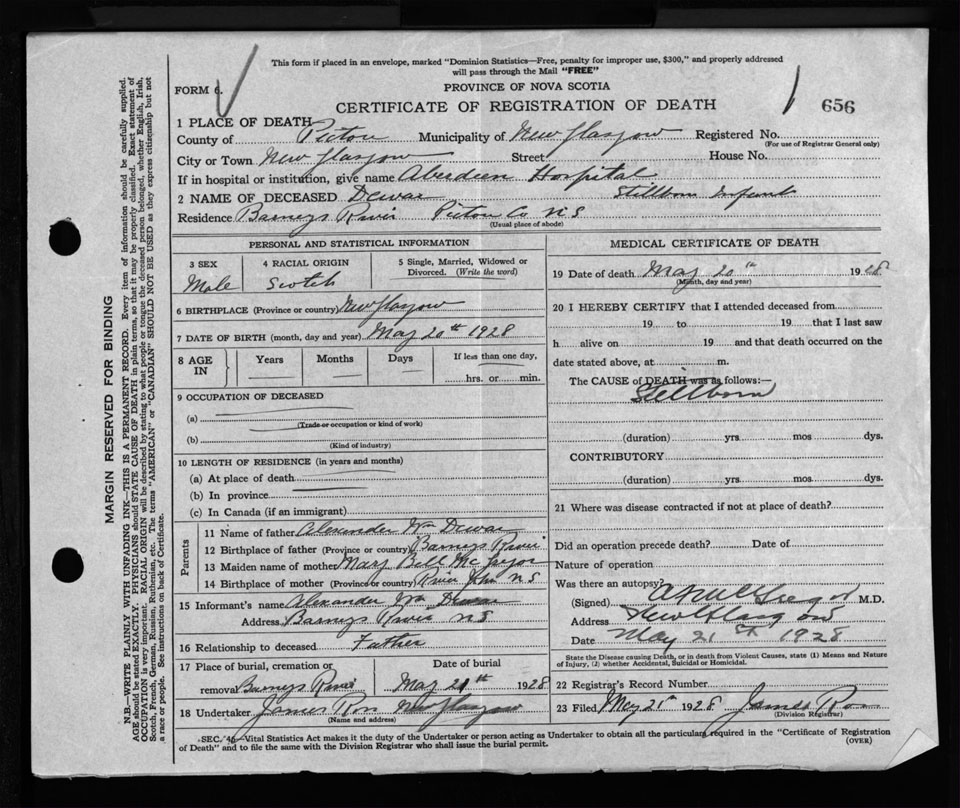 This form if placed in an envelope, marked "Dominion Statistics—Free, penalty for improper use, $300," and properly addressed
will pass through the Mail "FREE"
FORM 6.
PROVINCE OF NOVA SCOTIA
CERTIFICATE OF REGISTRATION OF DEATH
656
1 PLACE OF DEATH
County of Pictou Municipality of New Glasgow Registered No.
(For use of Registrar General only)
City or Town New Glasgow Street House No.
If in hospital or institution, give name Aberdeen Hospital
2 NAME OF DECEASED Dewar Stillborn Infant
Residence Barneys River Pictou Co NS
(Usual place of abode)
PERSONAL AND STATISTICAL INFORMATION
3 SEX 4 RACIAL ORIGIN 5 Single, Married, Widowed or
Divorced. (Write the word)
Male Scotch
6 BIRTHPLACE (Province or country) New Glasgow
7 DATE OF BIRTH (month, day and year) May 20th 1928
8 AGE IN Years Months Days If less than one day,
hrs. or min.
9 OCCUPATION OF DECEASED
(a)
(Trade or occupation or kind of work)
(b)
(Kind of industry)
10 LENGTH OF RESIDENCE (in years and months)
(a) At place of death
(b) In province
(c) In Canada (if an immigrant)
Parents
11 Name of father Alexander Wm Dewar
12 Birthplace of father (Province or country) Barneys River
13 Maiden name of mother Mary Bell McGregor
14 Birthplace of mother (Province or country) River John NS
15 Informant's name Alexander Wm Dewar
Address Barneys River NS
16 Relationship to deceased Father
17 Place of burial, cremation or Date of burial
removal Barneys River May 21th 1928
18 Undertaker James Ross New Glasgow
(Name and address)
MEDICAL CERTIFICATE OF DEATH
19 Date of death May 20th 1928
(Month, day and year)
20 I HEREBY CERTIFY that I attended deceased from
19 to 19 that I last saw
h alive on 19 and that death occurred on the
date stated above, at m.
The CAUSE of DEATH was as follows:—
Stillborn
(duration) yrs. mos dys.
CONTRIBUTORY
(duration) yrs. mos dys.
21 Where was disease contracted if not at place of death?
Did an operation precede death? Date of
Nature of operation
Was there an autopsy?
(Signed) McGregor M.D.
Address New Glasgow
Date May 21st 1928
State the Disease causing Death, or in death from Violent Causes, state (1) Means and Nature
of Injury, (2) whether Accidental, Suicidal or Homicidal.
22 Registrar's Record Number
23 Filed May 21th 1928 James Ross
(Division Registrar)
SEC. 4 Vital Statistics Act makes it the duty of the Undertaker or person acting as Undertaker to obtain all the particulars required in the "Certificate of Registration
of Death" and to file the same with the Division Registrar who shall issue the burial permit.
(OVER)
MARGIN RESERVED FOR BINDING
N.B.—WRITE PLAINLY WITH UNFADING INK—THIS IS A PERMANENT RECORD. Every item of information should be carefully supplied.
AGE should be stated EXACTLY. PHYSICIANS should STATE CAUSE OF DEATH in plain terms, so that it may be properly classified. Exact statement of
OCCUPATION is very important. RACIAL ORIGIN will be described by stating to what people or tongue the deceased person belonged, whether English, Irish,
Scotch, French, German, Russian, Ruthenian, etc. The terms "AMERICAN" or "CANADIAN" SHOULD NOT BE USED as they express citizenship but not
a race or people. See instructions on back of Certificate.